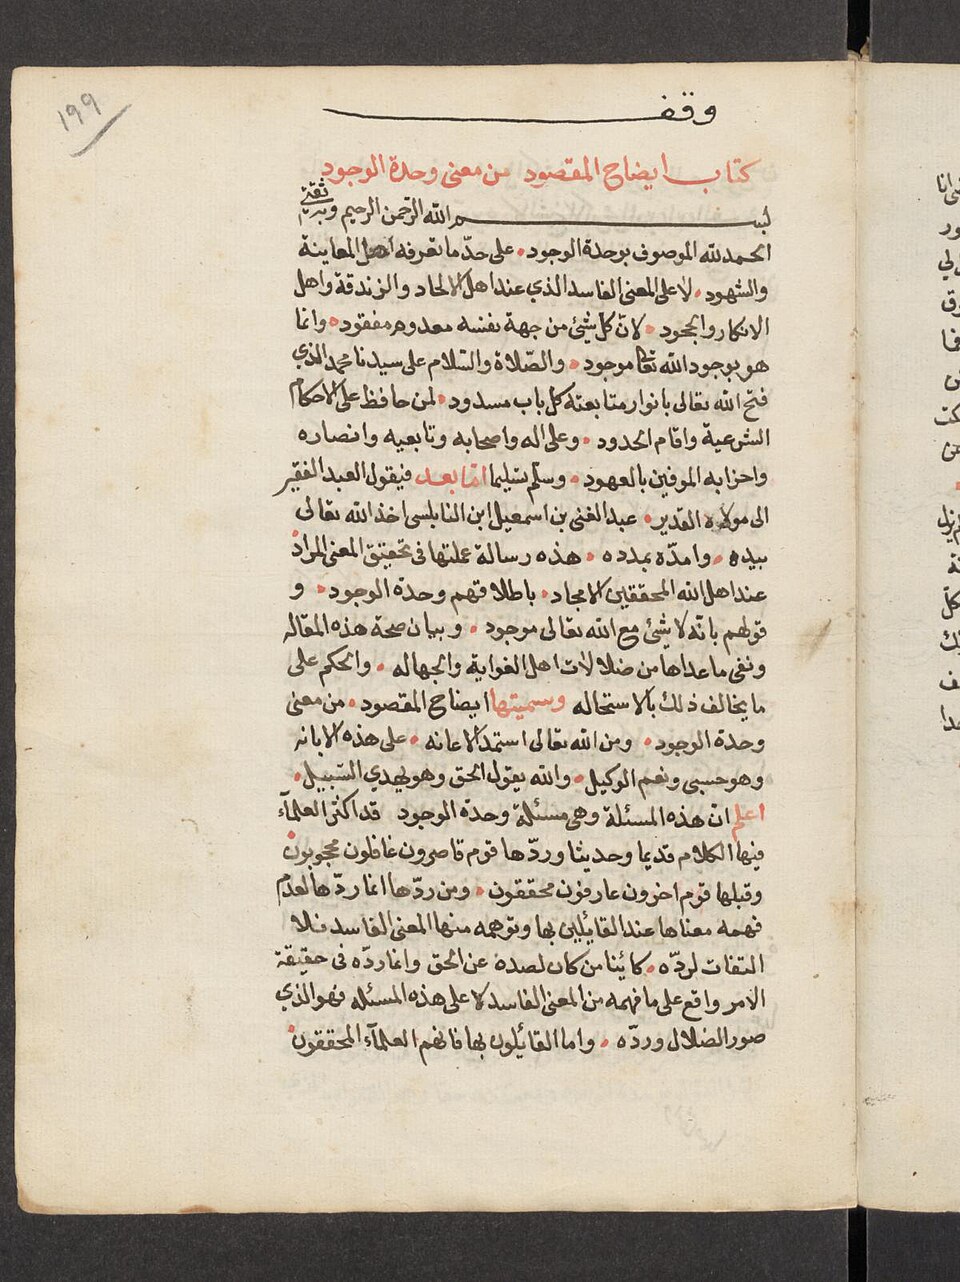 ١٩٩
وقف
كتاب ايضاح المقصود من معنى وحدة الوجود
بسم الله الرحمن الرحيم وبه ثقتي
الحمد لله الموصوف بوحدة الوجود على حد ما تعرفه اهل المعاينة
والشهود لا على المعنى الفاسد الذي عند اهل الالحاد والزندقة واهل
الانكار والجحود لان كل شئ من جهة نفسه معدوم مفقود وانما
هو بوجود الله تعا موجود والصلاة والسلام على سيدنا محمد الذي
فتح الله تعالى بانوار متابعته كل باب مسدود لمن حافظ على الاحكام
الشرعية واقام الحدود وعلى اله واصحابه وتابعيه وانصاره
واحزابه الموفين بالعهود وسلم تسليما اما بعد فيقول العبد الفقير
الى مولاه القدير عبد الغنى بن اسمعيل ابن النابلسى اخذ الله تعالى
بيده وامدّه بمدده هذه رسالة عملتها فى تحقيق المعنى المراد
عند اهل الله المحققين الامجاد باطلاقهم وحدة الوجود و
قولهم بانّه لا شئ مع الله تعالى موجود وبيان صحة هذه المقاله
ونفى ما عداها من ضلالات اهل الغواية والجهاله والحكم على
ما يخالف ذلك بالاستحاله وسميتها ايضاح المقصود من معنى
وحدة الوجود ومن الله تعالى استمد الاعانه على هذه الابانه
وهو حسبى ونعم الوكيل والله يقول الحق وهو يهدي السّبيل
اعلم ان هذه المسئلة وهى مسئلة وحدة الوجود قد اكثر العلمآء
فيها الكلام قديما وحديثا وردّها قوم قاصرون غافلون محجوبون
وقبلها قوم اخرون عارفون محققون ومن ردّها انما ردّها لعدم
فهمه معناها عند القائلين بها وتوهمه منها المعنى الفاسد فلا
التفات لردّه كائنا من كان لصده عن الحق وانما ردّه فى حقيقة
الامر واقع على ما فهمه من المعنى الفاسد لا على هذه المسئله فهو الذي
صور الضلال وردّه واما القائلون بها فانهم العلمآء المحققون